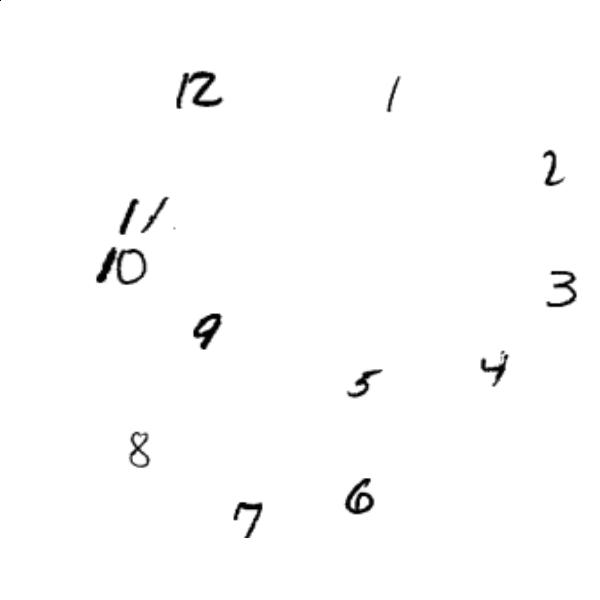 12 1
2
11
10
3
9
4
5
8
6
7